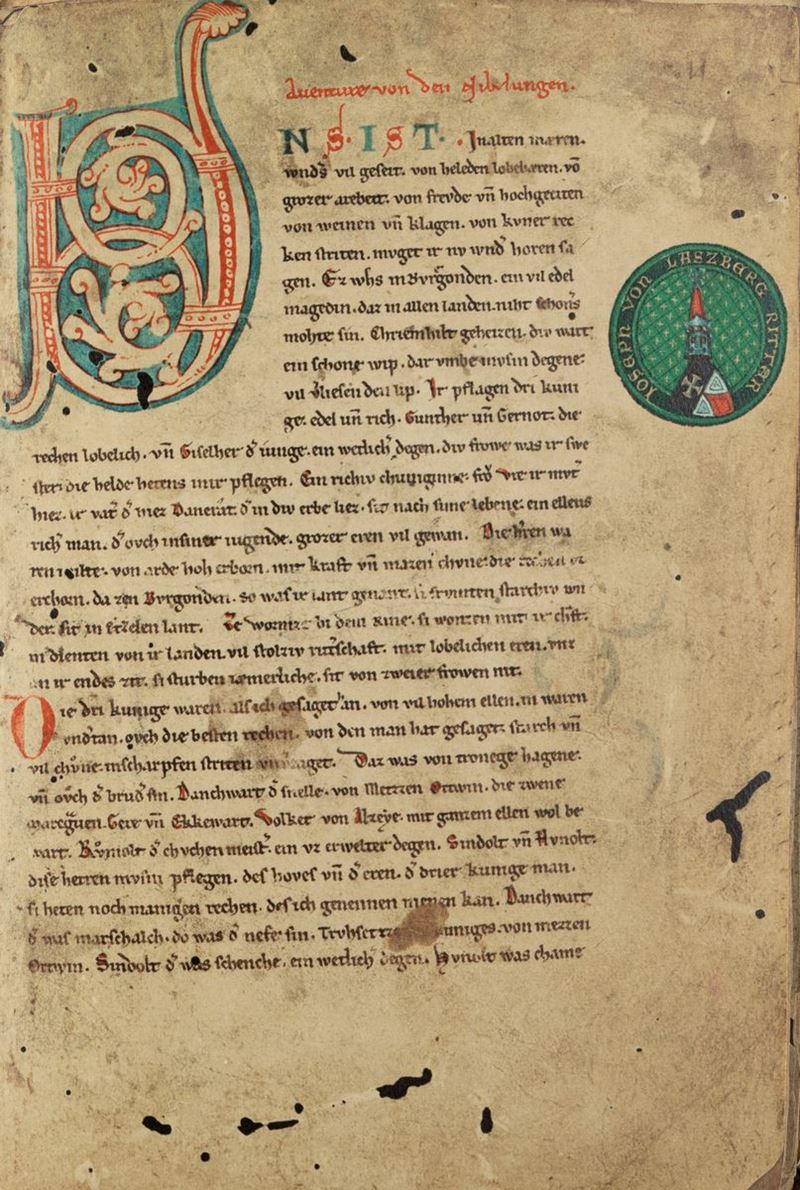 Auenture von den Nibelungen.
VNS. IST. In alten mæren.
wnd͛s vil geseit. von heleden lobebæren. vō
grozer arebeit. von frevde vn̄ hochgeciten
von weinen vn̄ klagen. von kvner rec
ken striten. mvget ir nv wnd͛ horen sa
gen. Ez whs in Bvrgonden. ein vil edel
magedin. daz in allen landen. niht schoners
mohte sin. Chriemhilt geheizen. div wart
ein schone wip. dar vmbe mvsin degene
vil vliesen den lip. Ir pflagen dri kuni
ge. edel un̄ rich. Gunther un̄ Gernot. die
rechen lobelich. vn̄ Giselher d͛ iunge. ein wetlich͛ degen. div frowe was ir swe
ster. die helde hetens inir pflegen. Ein richiv chuniginne. frō Vte ir mvt͛
hiez. ir vat͛ d͛ hiez Dancrat. d͛ in div erbe liez. sit nach sime lebene. ein ellens
rich͛ man. d͛ ovch insiner iugende. grozer eren vil gewan. Die h͛ren wa
ren milte. von arde hoh erborn. mit kraft vn̄ mazen chvne. die rechen vz
erchorn. da zen Bvrgonden. so was ir lant genant. si frvmten starchiv wn
der. sit in Etzelen lant. Ze Wormze bi dem Rine. si wonten mit ir chraft.
in dienten von ir landen. vil stolziv ritt͛schaft. mit lobelichen eren. vnz
an ir endes zit. si sturben iæmerliche. sit von zweier frowen nit.
Die dri kunige waren. als ich gesaget han. von vil hohem ellen. in waren
vndtan. ovch die besten rechen. von den man hat gesaget. starch vn̄
vil chvne. in scharpfen striten vnverzaget. Daz was von tronege hagene.
vn̄ ovch d͛ brud͛ sin. Danchwart d͛ snelle. von Metzen Ortwin. die zwene
marcgauen. Gere vn̄ Ekkewart. Volker von Alzeye. mit ganzem ellen wol be
wart. Rvmolt d͛ chvchen meist͛. ein vz erwelter degen. Sindolt vn̄ Hvnolt.
dise herren mvsin pflegen. des hoves vn̄ d͛ eren. d͛ drier kunige man.
si heten noch manigen rechen. des ich genennen nienen kan. Danchwart
d͛ was marschalch. do was d͛ nefe sin. Trvhsetze des kuniges. von metzen
Ortwin. Sindolt d͛ was schenche. ein wetlich͛ degen. Hvnolt was chame
IOSEPH VON LASZBERG RITTER